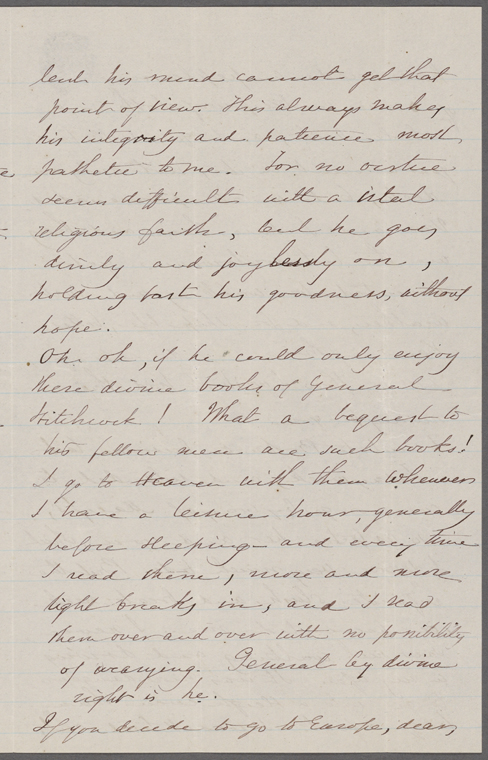 but his mind cannot get that
point of view. This always makes
his integrity and patience most
pathetic to me. For no virtue
seems difficult with a vital
religious faith, but he goes
dimly and joylessly on,
holding fast his goodness, without
hope.
Oh oh, if he could only enjoy
these divine books of General
Hitchcock! What a bequest to
his fellow men are such books!
I go to Heaven with them whenever
I have a leisure hour, generally
before sleeping and every time
I read them, more and more
light breaks in, and I read
them over and over with no possibility
of wearying. General by divine
right is he.
If you decide to go to Europe, dear,